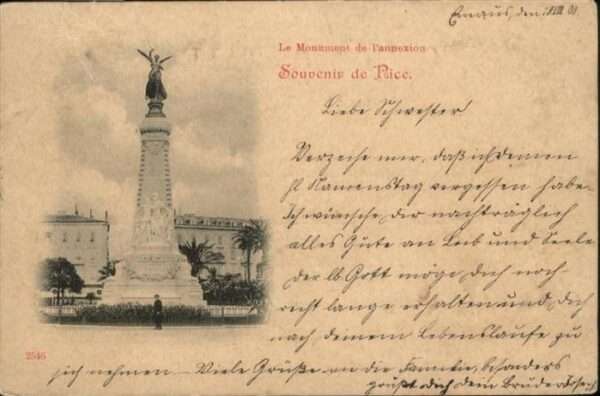 den 18/III 01
Le Monument de l'annexion
Souvenir de Nice.
Liebe Schwester
Verzeihe mir, daß ich deinen
hl Namenstag vergessen habe.
Ich wünsche Dir nachträglich
alles Gute an Leib und Seele
der lb Gott möge dich noch
recht lange erhalten und dich
nach deinem Lebenslaufe zu
sich nehmen — Viele Grüße an die Familie, besonders
grüßt dich dein Bruder Josef
2546